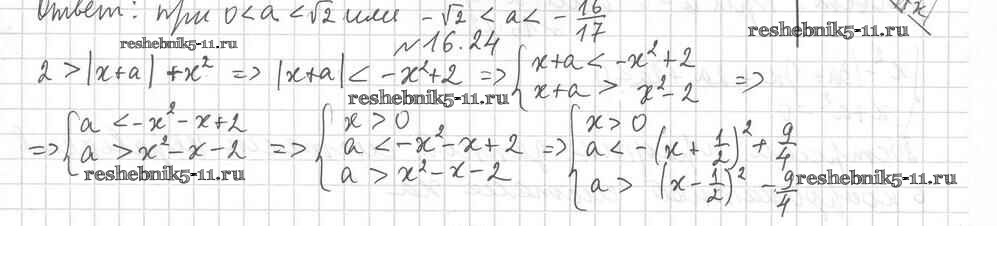 Ответ: при 0<a<√2 или -√2 < a < -16/17
reshebnik5-11.ru
reshebnik5-11.ru
№16.24
2 > |x+a| + x² => |x+a| < -x²+2 => { x+a < -x²+2 ; x+a > x²-2 =>
reshebnik5-11.ru
=> { a < -x²-x+2 ; a > x²-x-2 => { x>0 ; a < -x²-x+2 ; a > x²-x-2 => { x>0 ; a < -(x+1/2)²+9/4 ; a > (x-1/2)²-9/4
reshebnik5-11.ru
reshebnik5-11.ru